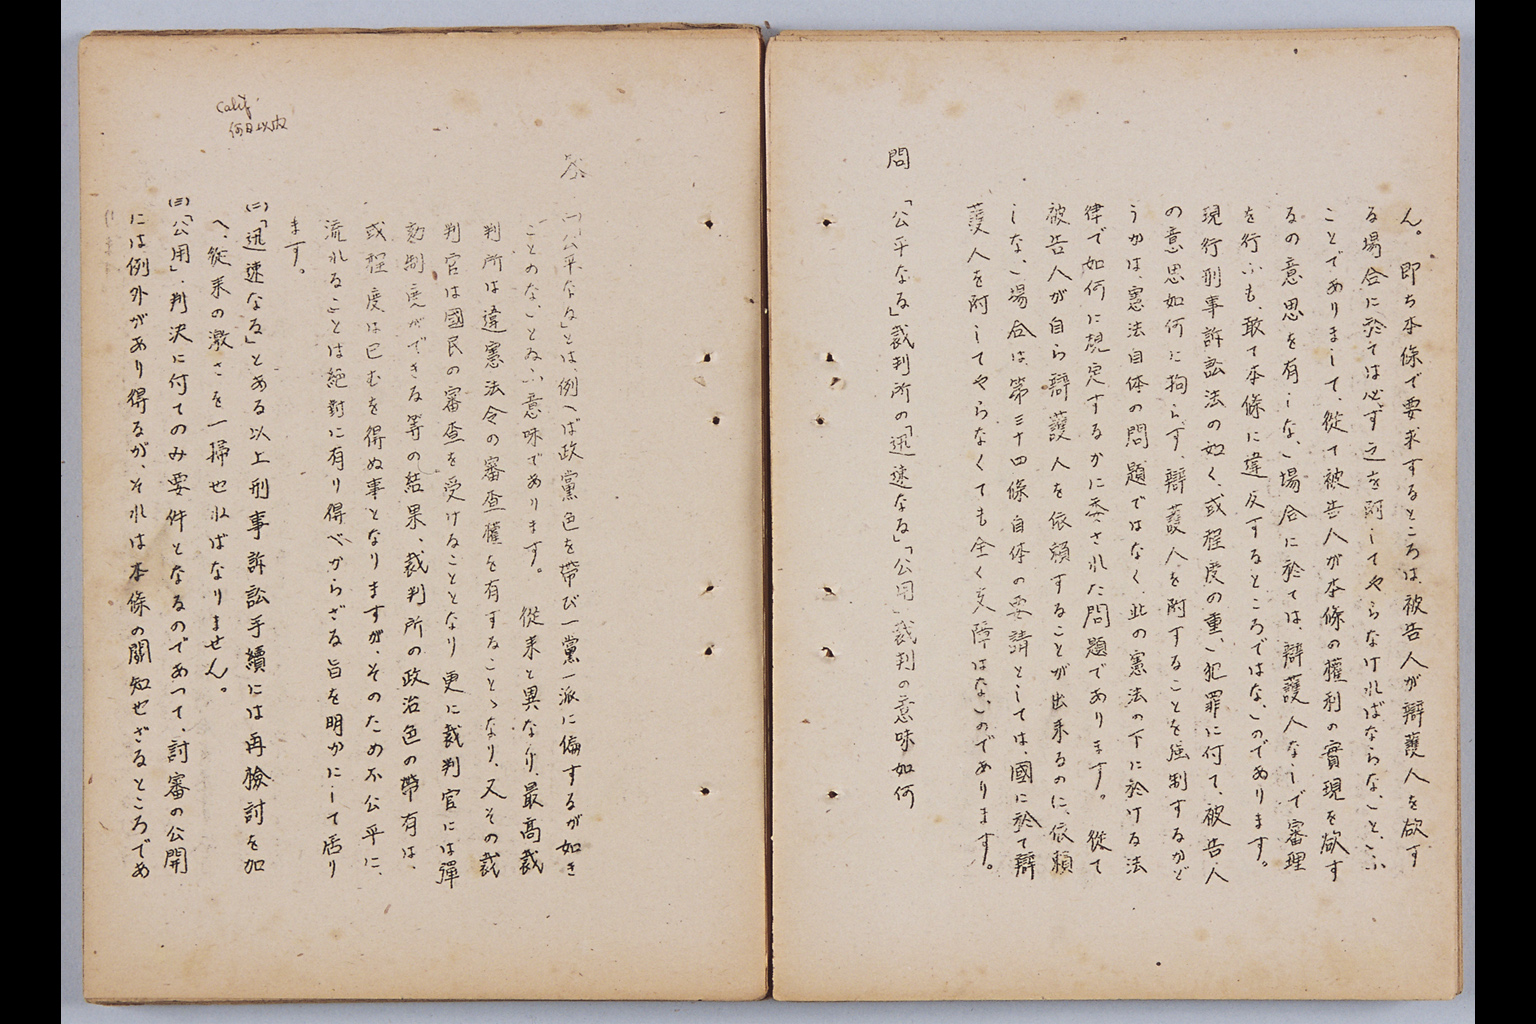 ん。即ち本條で要求するところは被告人が辯護人を欲す
る場合に於ては必ず之を附してやらなければならないといふ
ことでありまして、從て被告人が本條の權利の實現を欲す
るの意思を有しない場合に於ては、辯護人なしで審理
を行ふも、敢て本條に違反するところではないのであります。
現行刑事訴訟法の如く、或程度の重い犯罪に付て、被告人
の意思如何に拘らず、辯護人を附することを强制するかど
うかは、憲法自体の問題ではなく、此の憲法の下に於ける法
律で如何に規定するかに委された問題であります。 從て
被告人が自ら辯護人を依賴することが出來るのに、依賴
しない場合は、第三十四條自体の要請としては、國に於て辯
護人を附してやらなくても全く支障はないのであります。
問 「公平なる」裁判所の「迅速なる」「公開」裁判の意味如何
答 (一)「公平なる」とは、例へば政黨色を帶び一黨一派に偏するが如き
ことのないとゐふ意味であります。 從來と異なり、最高裁
判所は違憲法令の審査權を有することゝなり、又その裁
判官は國民の審査を受けることとなり更に裁判官には彈
劾制度ができる等の結果、裁判所の政治色の帶有は、
或程度は已むを得ぬ事となりますが、そのため不公平に、
流れることは絕對に有り得べからざる旨を明かにして居り
ます。
Calif.
何日以内
(二)「迅速なる」とある以上刑事訴訟手續には再檢討を加
へ、從來の激さを一掃せねばなりません。
(三)「公用」、判決に付てのみ要件となるのであつて、討審の公開
には例外があり得るが、それは本條の關知せざるところであ